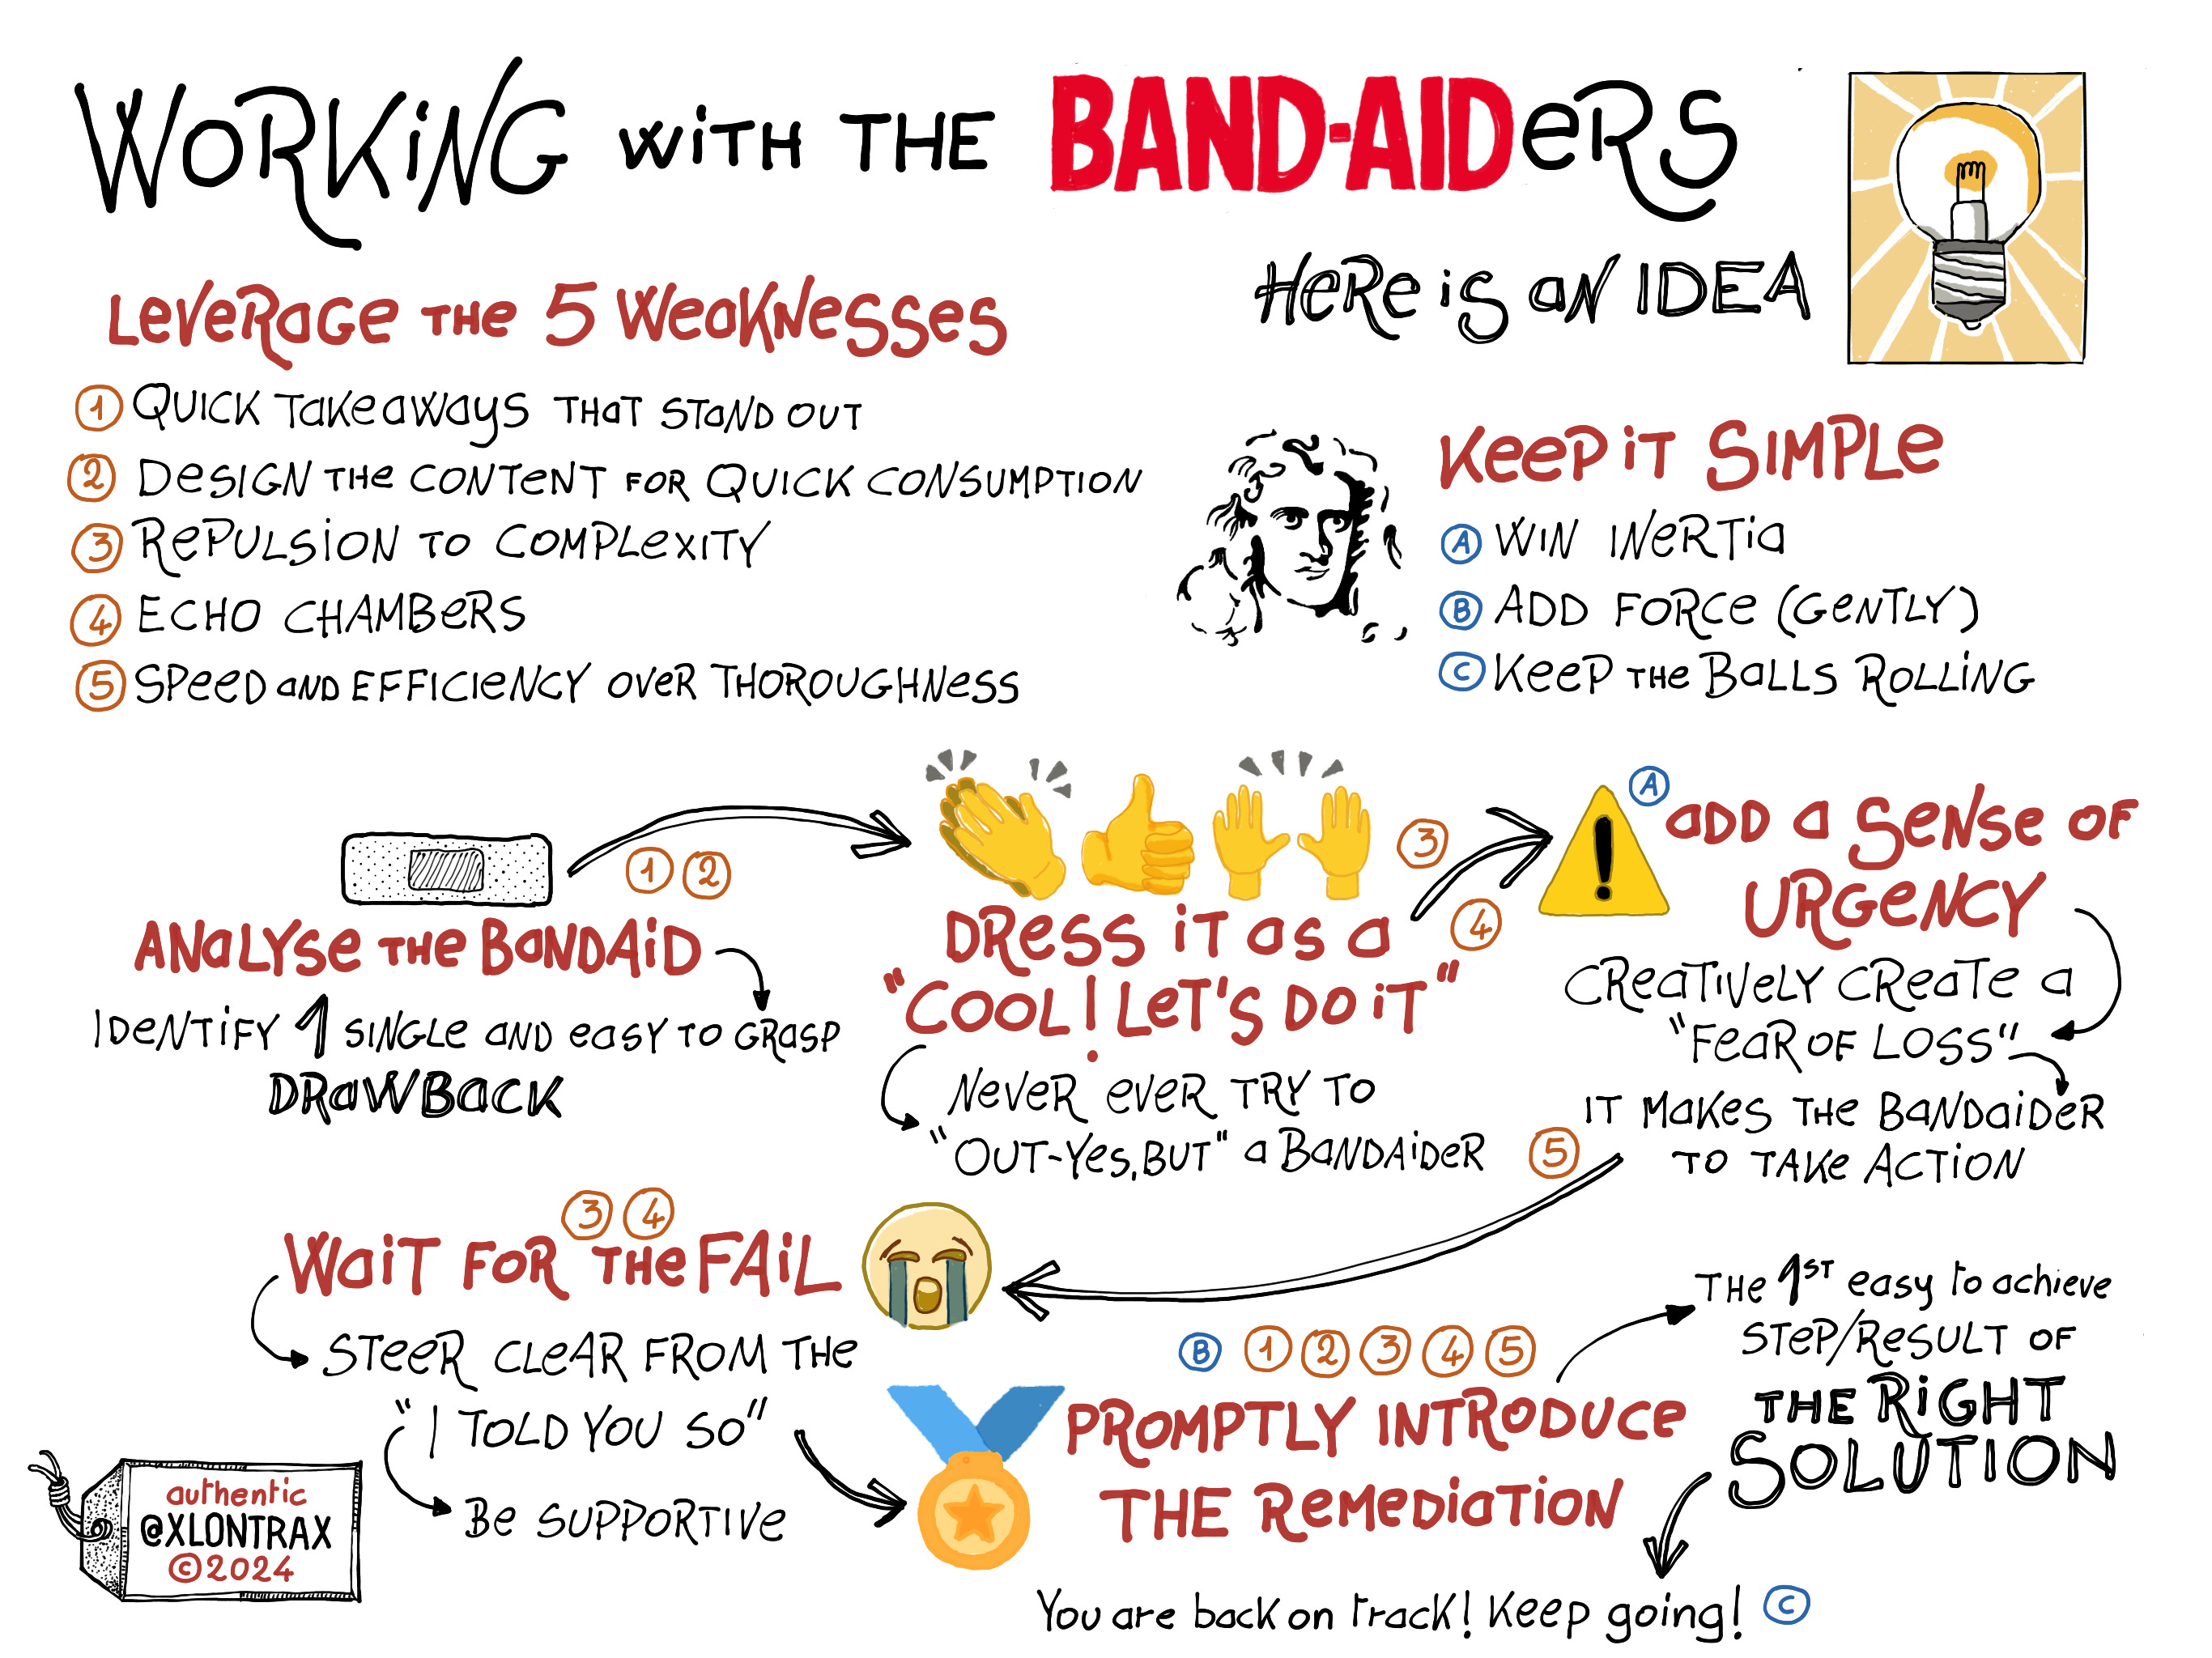 WORKING WITH THE BAND-AIDERS
HERE IS AN IDEA
LEVERAGE THE 5 WEAKNESSES
1 QUICK TAKEAWAYS THAT STAND OUT
2 DESIGN THE CONTENT FOR QUICK CONSUMPTION
3 REPULSION TO COMPLEXITY
4 ECHO CHAMBERS
5 SPEED AND EFFICIENCY OVER THOROUGHNESS
KEEP IT SIMPLE
A WIN INERTIA
B ADD FORCE (GENTLY)
C KEEP THE BALLS ROLLING
ANALYSE THE BANDAID
IDENTIFY 1 SINGLE AND EASY TO GRASP
DRAWBACK
1 2
DRESS IT AS A
"COOL! LET'S DO IT"
NEVER EVER TRY TO
"OUT-YES, BUT" A BANDAIDER
3
4
A
ADD A SENSE OF
URGENCY
CREATIVELY CREATE A
"FEAR OF LOSS"
IT MAKES THE BANDAIDER
TO TAKE ACTION
5
3 4
WAIT FOR THE FAIL
STEER CLEAR FROM THE
"I TOLD YOU SO"
BE SUPPORTIVE
B 1 2 3 4 5
PROMPTLY INTRODUCE
THE REMEDIATION
THE 1ST easy to achieve
STEP/RESULT OF
THE RIGHT
SOLUTION
You are back on track! Keep going! C
authentic
@XLONTRAX
©2024